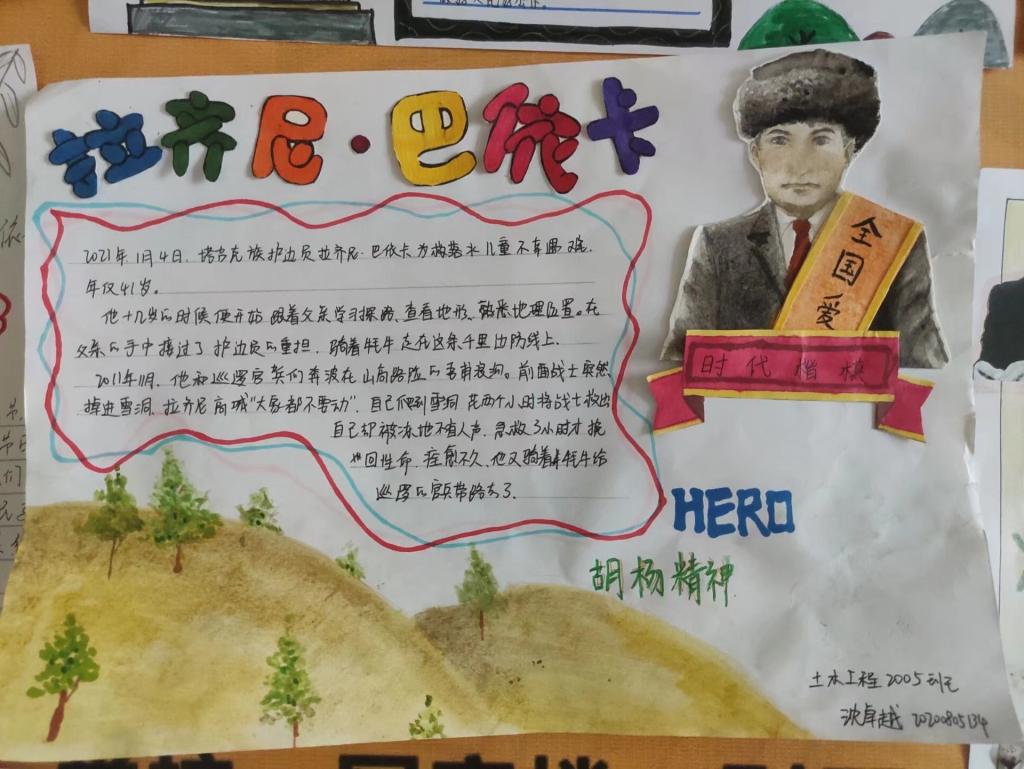 拉齐尼·巴依卡
2021年1月4日，塔吉克族护边员拉齐尼·巴依卡为救落水儿童不幸遇难，
年仅41岁。
他十几岁的时候便开始跟着父亲学习探路、查看地形、熟悉地理位置。在
父亲的手中接过了护边员的重担，骑着牦牛走在这条千里边防线上。
2011年11月，他和巡逻官兵们奔波在山高路险的
前面战士突然
掉进雪洞，拉齐尼
"大家都不要动"，自己爬到雪洞花两个小时将战士救出
自己却被冻地不省人事，急救3小时才挽
回性命，痊愈不久，他又骑着牦牛给
巡逻的官兵带路去了.
全国爱
时代楷模
HERO
胡杨精神
土木工程2005班
沈卓越 20200805134